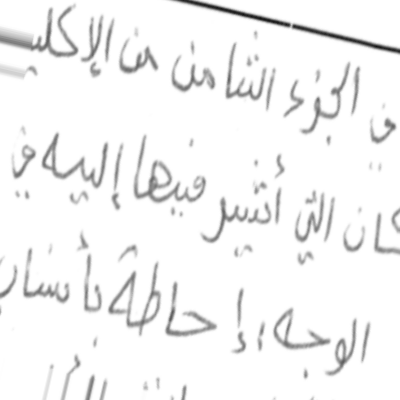 في الجزء الثامن من الإكليـ
كان التي أشير فيها إليه في
الوجه، إحاطة بأنساب